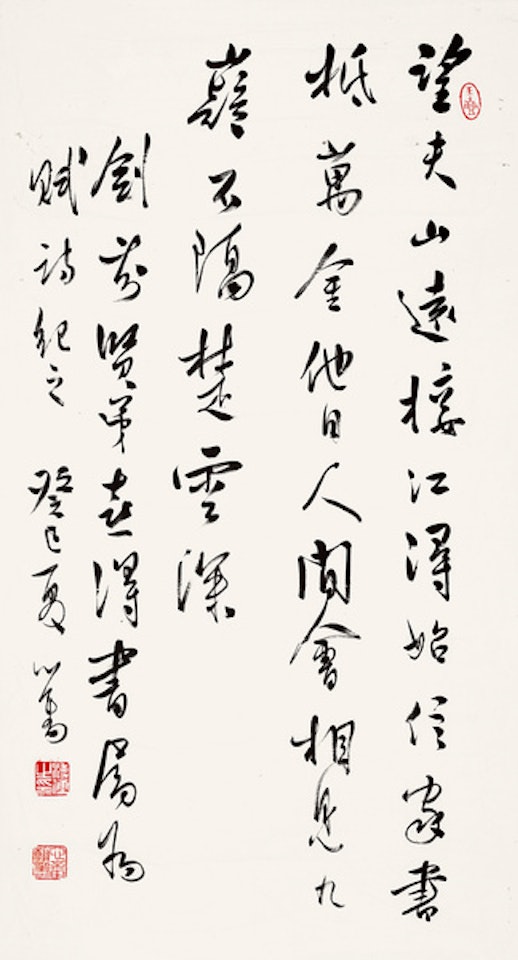 望夫山遠接江潯始信家書
抵萬金他日人間會相見九
嶷不隔楚雲深
劍芬賢弟喜得書屬為
賦詩紀之 癸巳夏 心畬